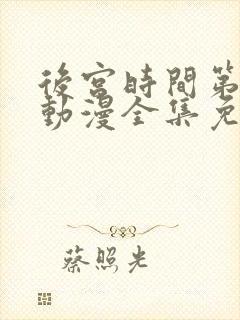 後宮時間第
動漫全集免
蔡照光